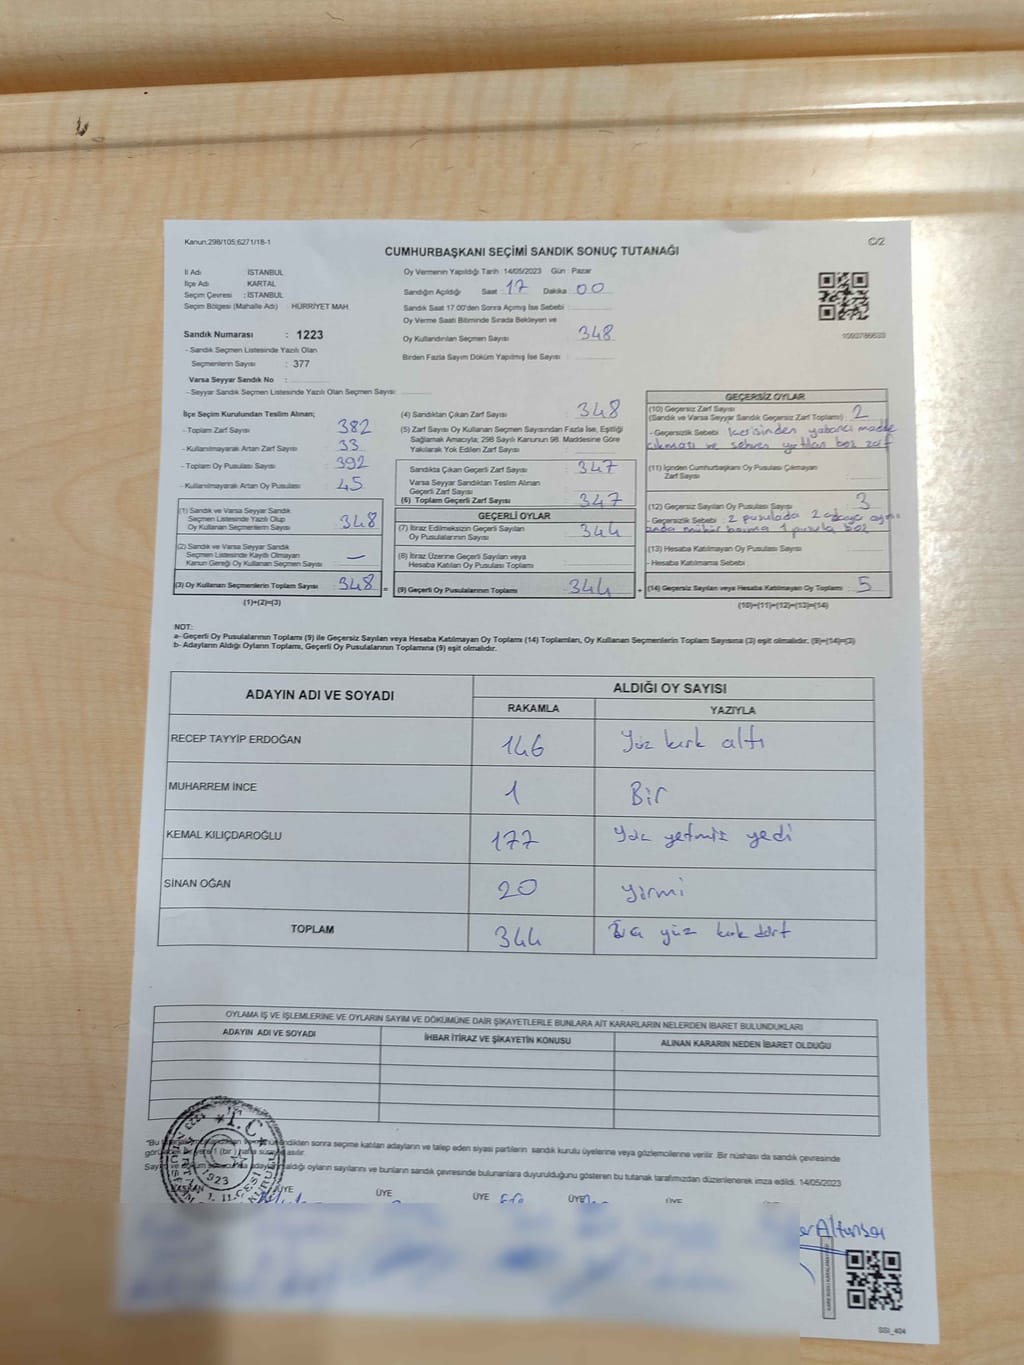 Kanun:298/105;6271/18-1
C/2
CUMHURBAŞKANI SEÇİMİ SANDIK SONUÇ TUTANAĞI
İl Adı : İSTANBUL
İlçe Adı : KARTAL
Seçim Çevresi : İSTANBUL
Seçim Bölgesi (Mahalle Adı) : HÜRRİYET MAH
Sandık Numarası : 1223
- Sandık Seçmen Listesinde Yazılı Olan
Seçmenlerin Sayısı : 377
Varsa Seyyar Sandık No :
- Seyyar Sandık Seçmen Listesinde Yazılı Olan Seçmen Sayısı:
Oy Vermenin Yapıldığı Tarih : 14/05/2023 Gün : Pazar
Sandığın Açıldığı Saat : 17 Dakika : 00
Sandık Saat 17:00'den Sonra Açılmış İse Sebebi :
Oy Verme Saati Bitiminde Sırada Bekleyen ve
Oy Kullandırılan Seçmen Sayısı : 348
Birden Fazla Sayım Döküm Yapılmış İse Sayısı :
1090786633
İlçe Seçim Kurulundan Teslim Alınan;
- Toplam Zarf Sayısı : 382
- Kullanılmayarak Artan Zarf Sayısı : 33
- Toplam Oy Pusulası Sayısı : 392
- Kullanılmayarak Artan Oy Pusulası : 45
(1) Sandık ve Varsa Seyyar Sandık
Seçmen Listesinde Yazılı Olup
Oy Kullanan Seçmenlerin Sayısı : 348
(2) Sandık ve Varsa Seyyar Sandık
Seçmen Listesinde Kayıtlı Olmayan
Kanun Gereği Oy Kullanan Seçmen Sayısı : –
(3) Oy Kullanan Seçmenlerin Toplam Sayısı : 348 =
(1)+(2)=(3)
(4) Sandıktan Çıkan Zarf Sayısı : 348
(5) Zarf Sayısı Oy Kullanan Seçmen Sayısından Fazla İse, Eşitliği
Sağlamak Amacıyla; 298 Sayılı Kanunun 98. Maddesine Göre
Yakılarak Yok Edilen Zarf Sayısı :
Sandıkta Çıkan Geçerli Zarf Sayısı : 347
Varsa Seyyar Sandıktan Teslim Alınan
Geçerli Zarf Sayısı
(6) Toplam Geçerli Zarf Sayısı : 347
GEÇERLİ OYLAR
(7) İtiraz Edilmeksizin Geçerli Sayılan
Oy Pusulalarının Sayısı : 344
(8) İtiraz Üzerine Geçerli Sayılan veya
Hesaba Katılan Oy Pusulası Toplamı :
(9) Geçerli Oy Pusulalarının Toplamı : 344 +
GEÇERSİZ OYLAR
(10) Geçersiz Zarf Sayısı
(Sandık ve Varsa Seyyar Sandık Geçersiz Zarf Toplamı) : 2
- Geçersizlik Sebebi : içerisinden yabancı madde
çıkması ve sehven yırtılan boş zarf
(11) İçinden Cumhurbaşkanı Oy Pusulası Çıkmayan
Zarf Sayısı :
(12) Geçersiz Sayılan Oy Pusulası Sayısı : 3
- Geçersizlik Sebebi : 2 pusulada 2 adaya aynı
anda mühür basma 1 pusula boş
(13) Hesaba Katılmayan Oy Pusulası Sayısı :
- Hesaba Katılmama Sebebi :
(14) Geçersiz Sayılan veya Hesaba Katılmayan Oy Toplamı : 5
(10)+(11)+(12)+(13)=(14)
NOT:
a- Geçerli Oy Pusulalarının Toplamı (9) ile Geçersiz Sayılan veya Hesaba Katılmayan Oy Toplamı (14) Toplamları, Oy Kullanan Seçmenlerin Toplam Sayısına (3) eşit olmalıdır. (9)+(14)=(3)
b- Adayların Aldığı Oyların Toplamı, Geçerli Oy Pusulalarının Toplamına (9) eşit olmalıdır.
ADAYIN ADI VE SOYADI
ALDIĞI OY SAYISI
RAKAMLA YAZIYLA
RECEP TAYYİP ERDOĞAN 146 Yüz kırk altı
MUHARREM İNCE 1 Bir
KEMAL KILIÇDAROĞLU 177 Yüz yetmiş yedi
SİNAN OĞAN 20 yirmi
TOPLAM 344 yüz kırk dört
OYLAMA İŞ VE İŞLEMLERİNE VE OYLARIN SAYIM VE DÖKÜMÜNE DAİR ŞİKAYETLERLE BUNLARA AİT KARARLARIN NELERDEN İBARET BULUNDUKLARI
ADAYIN ADI VE SOYADI İHBAR İTİRAZ VE ŞİKAYETİN KONUSU ALINAN KARARIN NEDEN İBARET OLDUĞU
"Bu sonra seçime katılan adayların ve talep eden siyasi partilerin sandık kurulu üyelerine veya gözlemcilerine verilir. Bir nüshası da sandık çevresinde
aldığı oyların sayılarını ve bunların sandık çevresinde bulunanlara duyurulduğunu gösteren bu tutanak tarafımızdan düzenlenerek imza edildi. 14/05/2023
T.C.
1923
BAŞKAN ÜYE ÜYE ÜYE ÜYE ÜYE
SSI_404